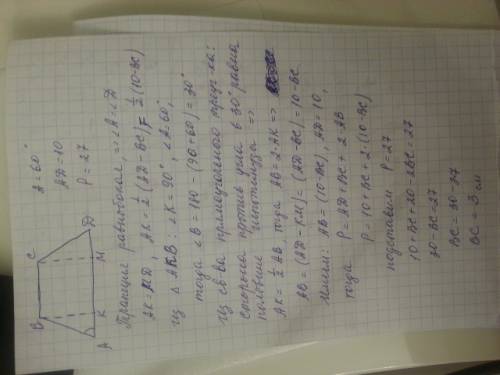 B
C
A
K
M
D
A=60°
AD=10
P=27
Трапеция равнобокая, => ∠A=∠D
AK=MD, AK=½(AD-BC)=½(10-BC)
из △ AKB: ∠K=90°, ∠A=60°,
тогда ∠B=180-(90+60)=30°
из св-ва прямоугольного треуг-ка:
сторона против угла в 30° равна
половине гипотенузы =>
AK=½AB, тогда AB=2·AK =>
AB=(AD-KM)=(AD-BC)=10-BC
Имеем: AB=(10-BC), AD=10,
тогда P=AD+BC+2·AB
P=10+BC+2·(10-BC)
подставим P=27
10+BC+20-2BC=27
30-BC=27
BC=30-27
BC=3 см